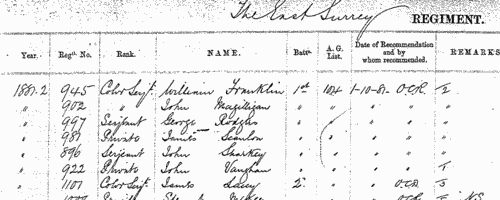 The East Surrey REGIMENT.
Year. Regtl. No. Rank. NAME. Batn. A. G. List. Date of Recommendation and by whom recommended. REMARKS
1881-2 945 Color Serjt. William Franklin 1st 104 1-10-81 O.C.R. 1/2
" 902 " John Magilligan " " " " "
" 997 Serjeant George Rodgers " " " " "
" 987 Private James Scanlon " " " "
" 896 Serjeant John Sharkey " " " "
" 922 Private John Vaughan " " " "
" 1101 Color Serjt. James Lacey 2 " " O.C.R.